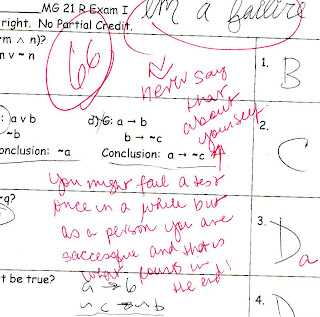 MG 21 R Exam I
Im a failure
right. No Partial Credit.
m ∧ n)?
n v ~ n
66
1. B
never say
that
about
yourself
: a v b
~b
onclusion: ~a
d) G: a → b
b → ~c
Conclusion: a → ~c
2. C
You might fail a test
once in a while but
as a person you are
saccesque and that is
what counts in
the end!
~q?
3. D
a
t be true?
a → b
~c → ~b
4.